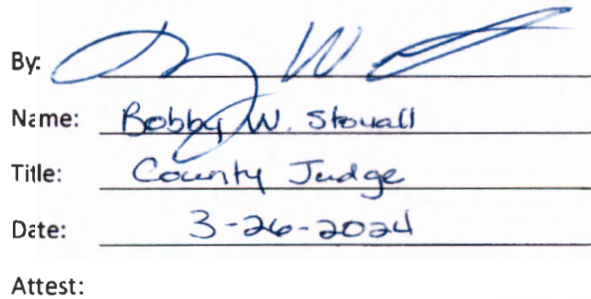 By:
Name: Bobby W. Stovall
Title: County Judge
Date: 3-26-2024
Attest: